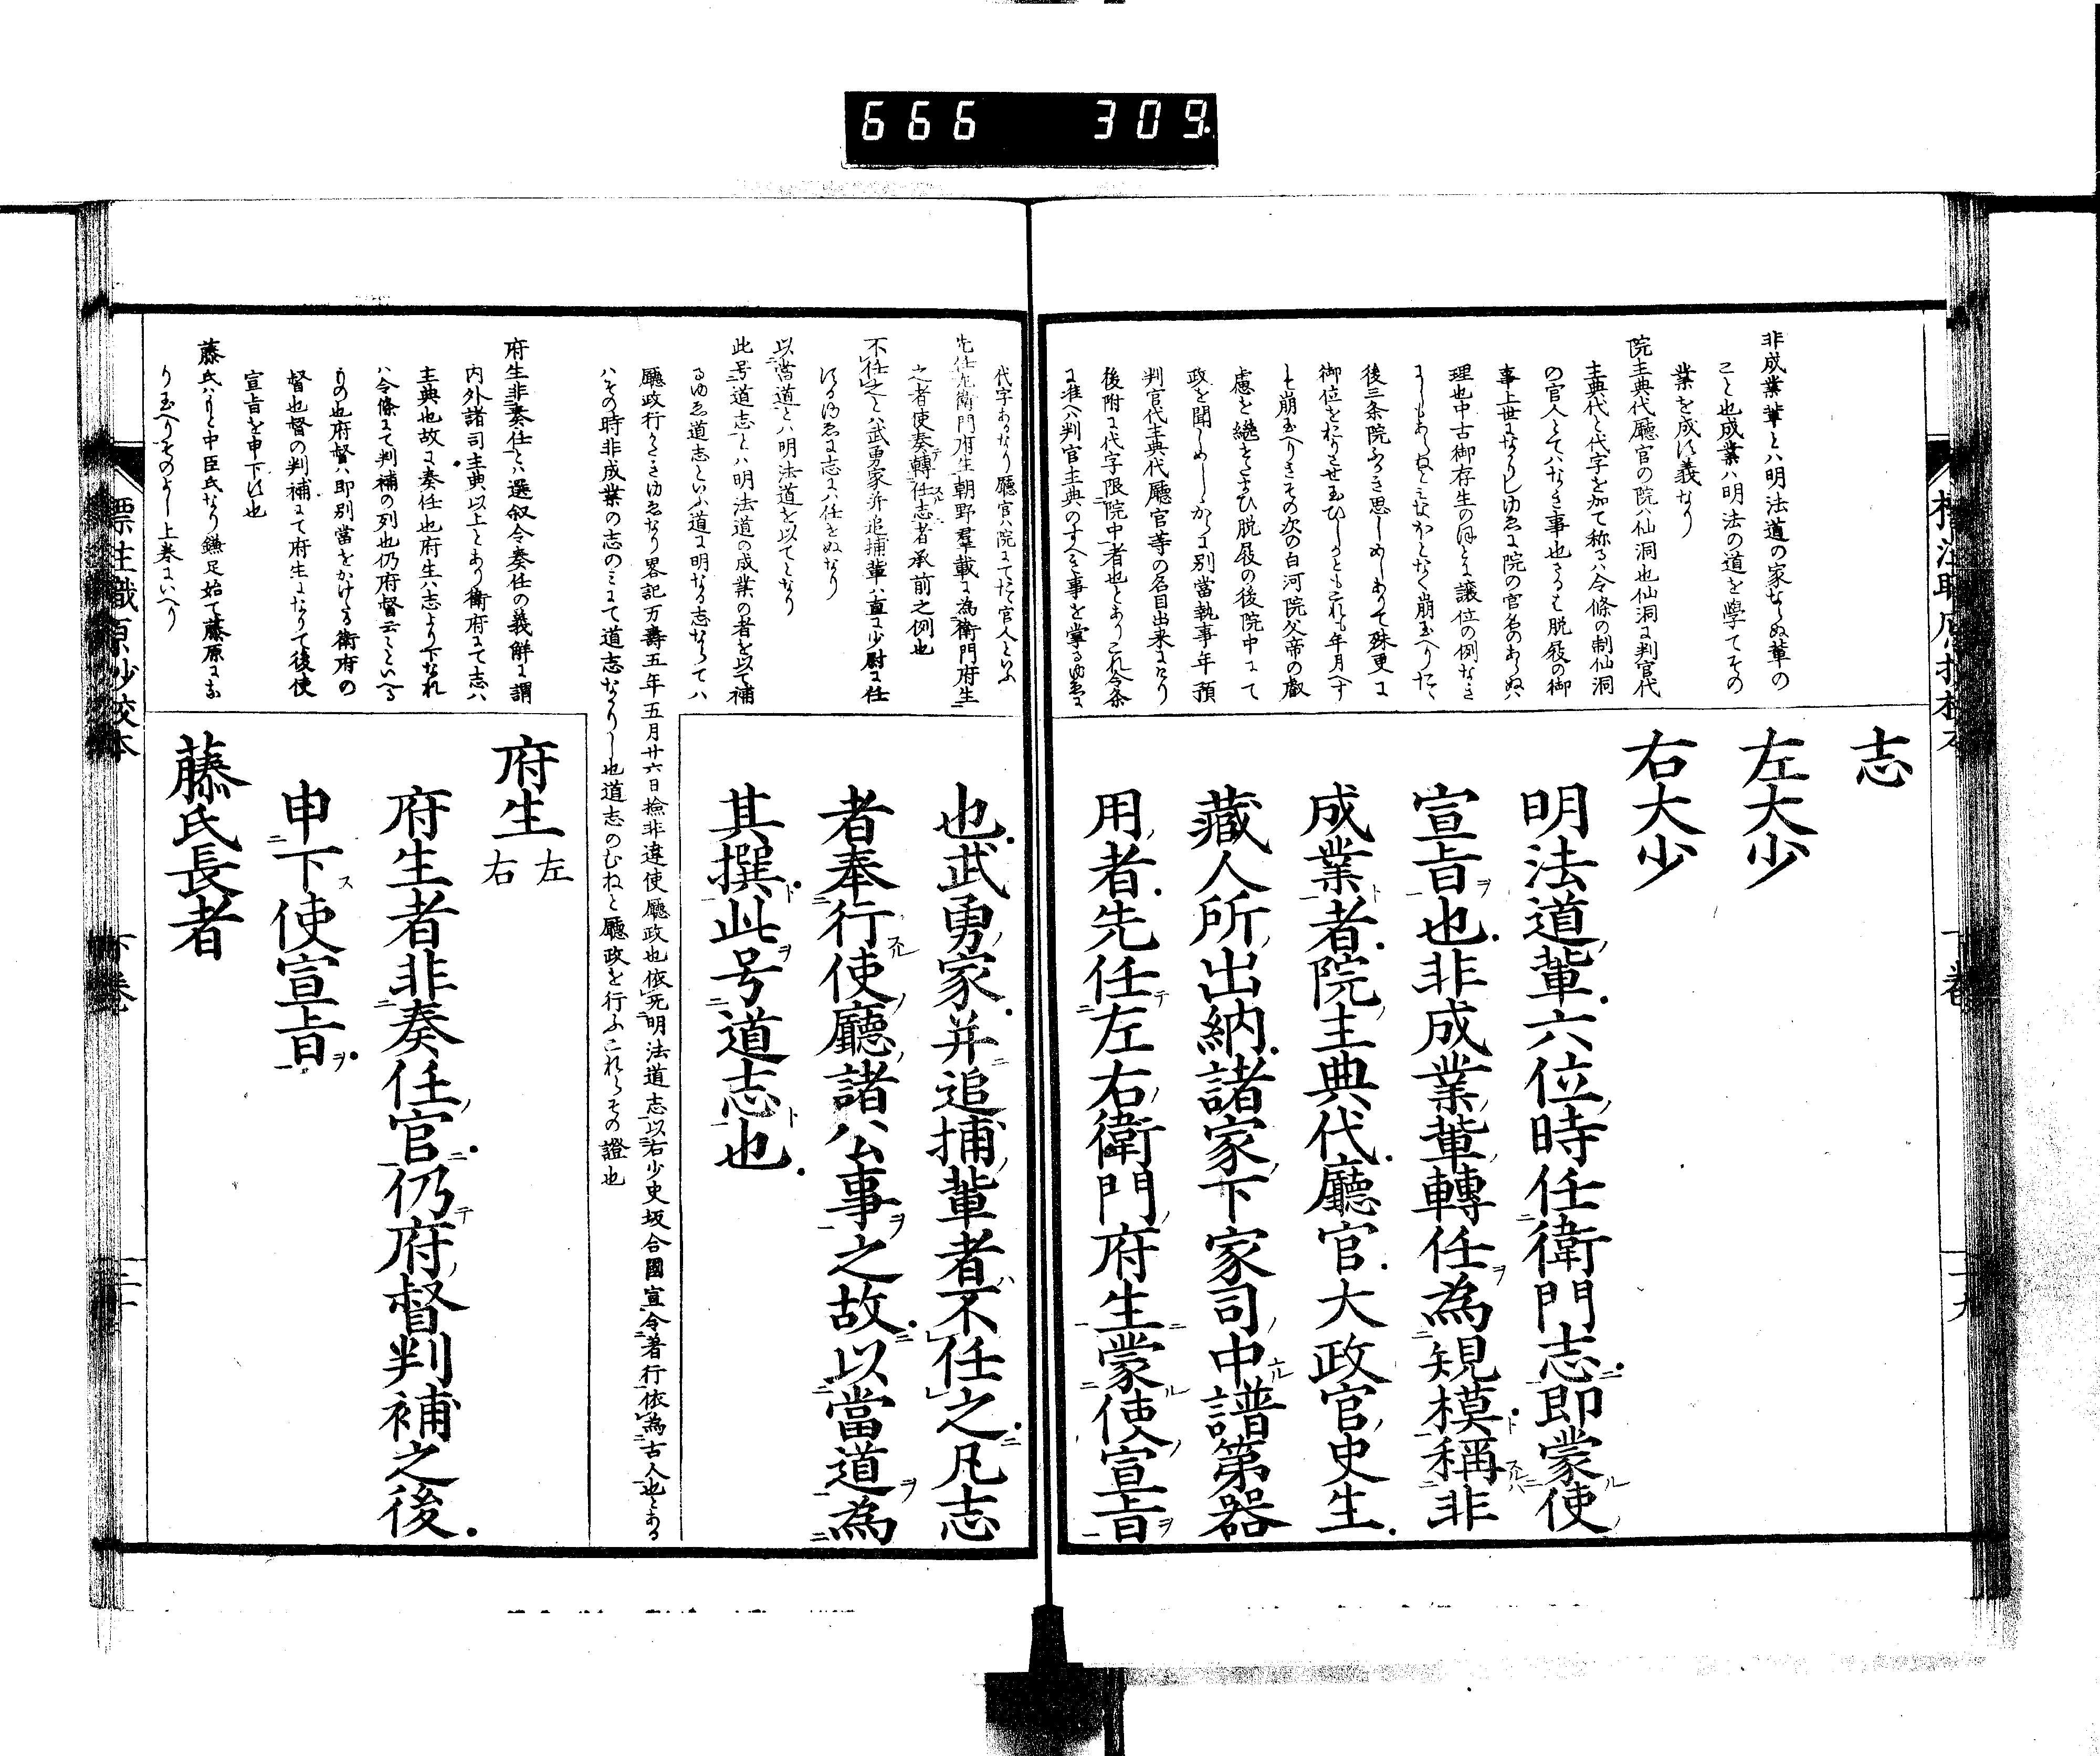 666 309.
非成業輩とハ明法道の家ならぬ輩の
こと也成業ハ明法の道を學てその
業を成に義なり
院主典代廳官の院ハ仙洞也仙洞に判官代
主典代と代字を加て称るハ令條の制仙洞
の官人とてハなき事也さるハ脱屐の御
事上世になかりしゆゑに院の官名のあらぬハ
理也中古御存生のほとに譲位の例なき
後三条院ふかき思しめしありて殊更に
慮を繼きたまひ脱屐の後院中にて
政を聞しめしゝからに別當執事年預
判官代主典代廳官等の名目出来にけり
後附に代字限院中者也とありこれ令条
に准へハ判官主典のすへき事を掌るゆゑに
志
左大少
右大少
明法道輩六位時任衛門志即蒙使
宣旨也非成業輩轉任為規模稱非
成業者院主典代廳官大政官史生
藏人所出納諸家下家司中譜第器
用者先任左右衛門府生蒙使宣旨
代字あるなり廳官ハ院にてたゝ官人といふ
先任左衛門府生朝野羣載に為衛門府生
之者使奏轉任志者承前之例也
不任之とハ武勇家并追捕輩ハ直に少尉に任
にるゆゑに志にハ任をぬなり
以當道とハ明法道を以てとなり
此号道志とハ明法道の成業の者を以て補
るゆゑ道志といふ道に明なる志ならてハ
廳政行ひかたきゆゑなり畧記万壽五年五月廿六日撿非違使廳政也依无明法道志以右少史坂合國宣令著行依為古人也とある
ハその時非成業の志のミにて道志なかりし也道志のむねと廳政を行ふこれらその證也
也武勇家并追捕輩者不任之凡志
者奉行使廳諸公事之故以當道為
其撰此号道志也
府生非奏任とハ選叙令奏任の義解に謂
内外諸司主典以上とあり衛府にて志ハ
主典也故に奏任也府生ハ志より下なれ
ハ令條にて判補の列也仍府督云々といへる
もの也府督ハ即別當をかけたる衛府の
督也督の判補にて府生になりて後使
宣旨を申下に也
藤氏ハもと中臣氏なり鎌足始て藤原にな
り玉へりそのよし上巻にいへり
府生 左右
府生者非奏任官仍府督判補之後
申下使宣旨
藤氏長者
標注職原抄校本
下巻